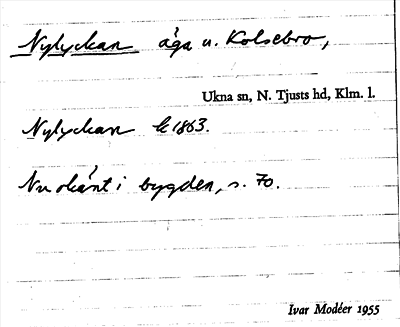 Nylyckan äga u. Kolsebro,
Ukna sn, N. Tjusts hd, Klm. l.
Nylyckan k 1863.
Nu okänt i bygden, s. 70.
Ivar Modéer 1955